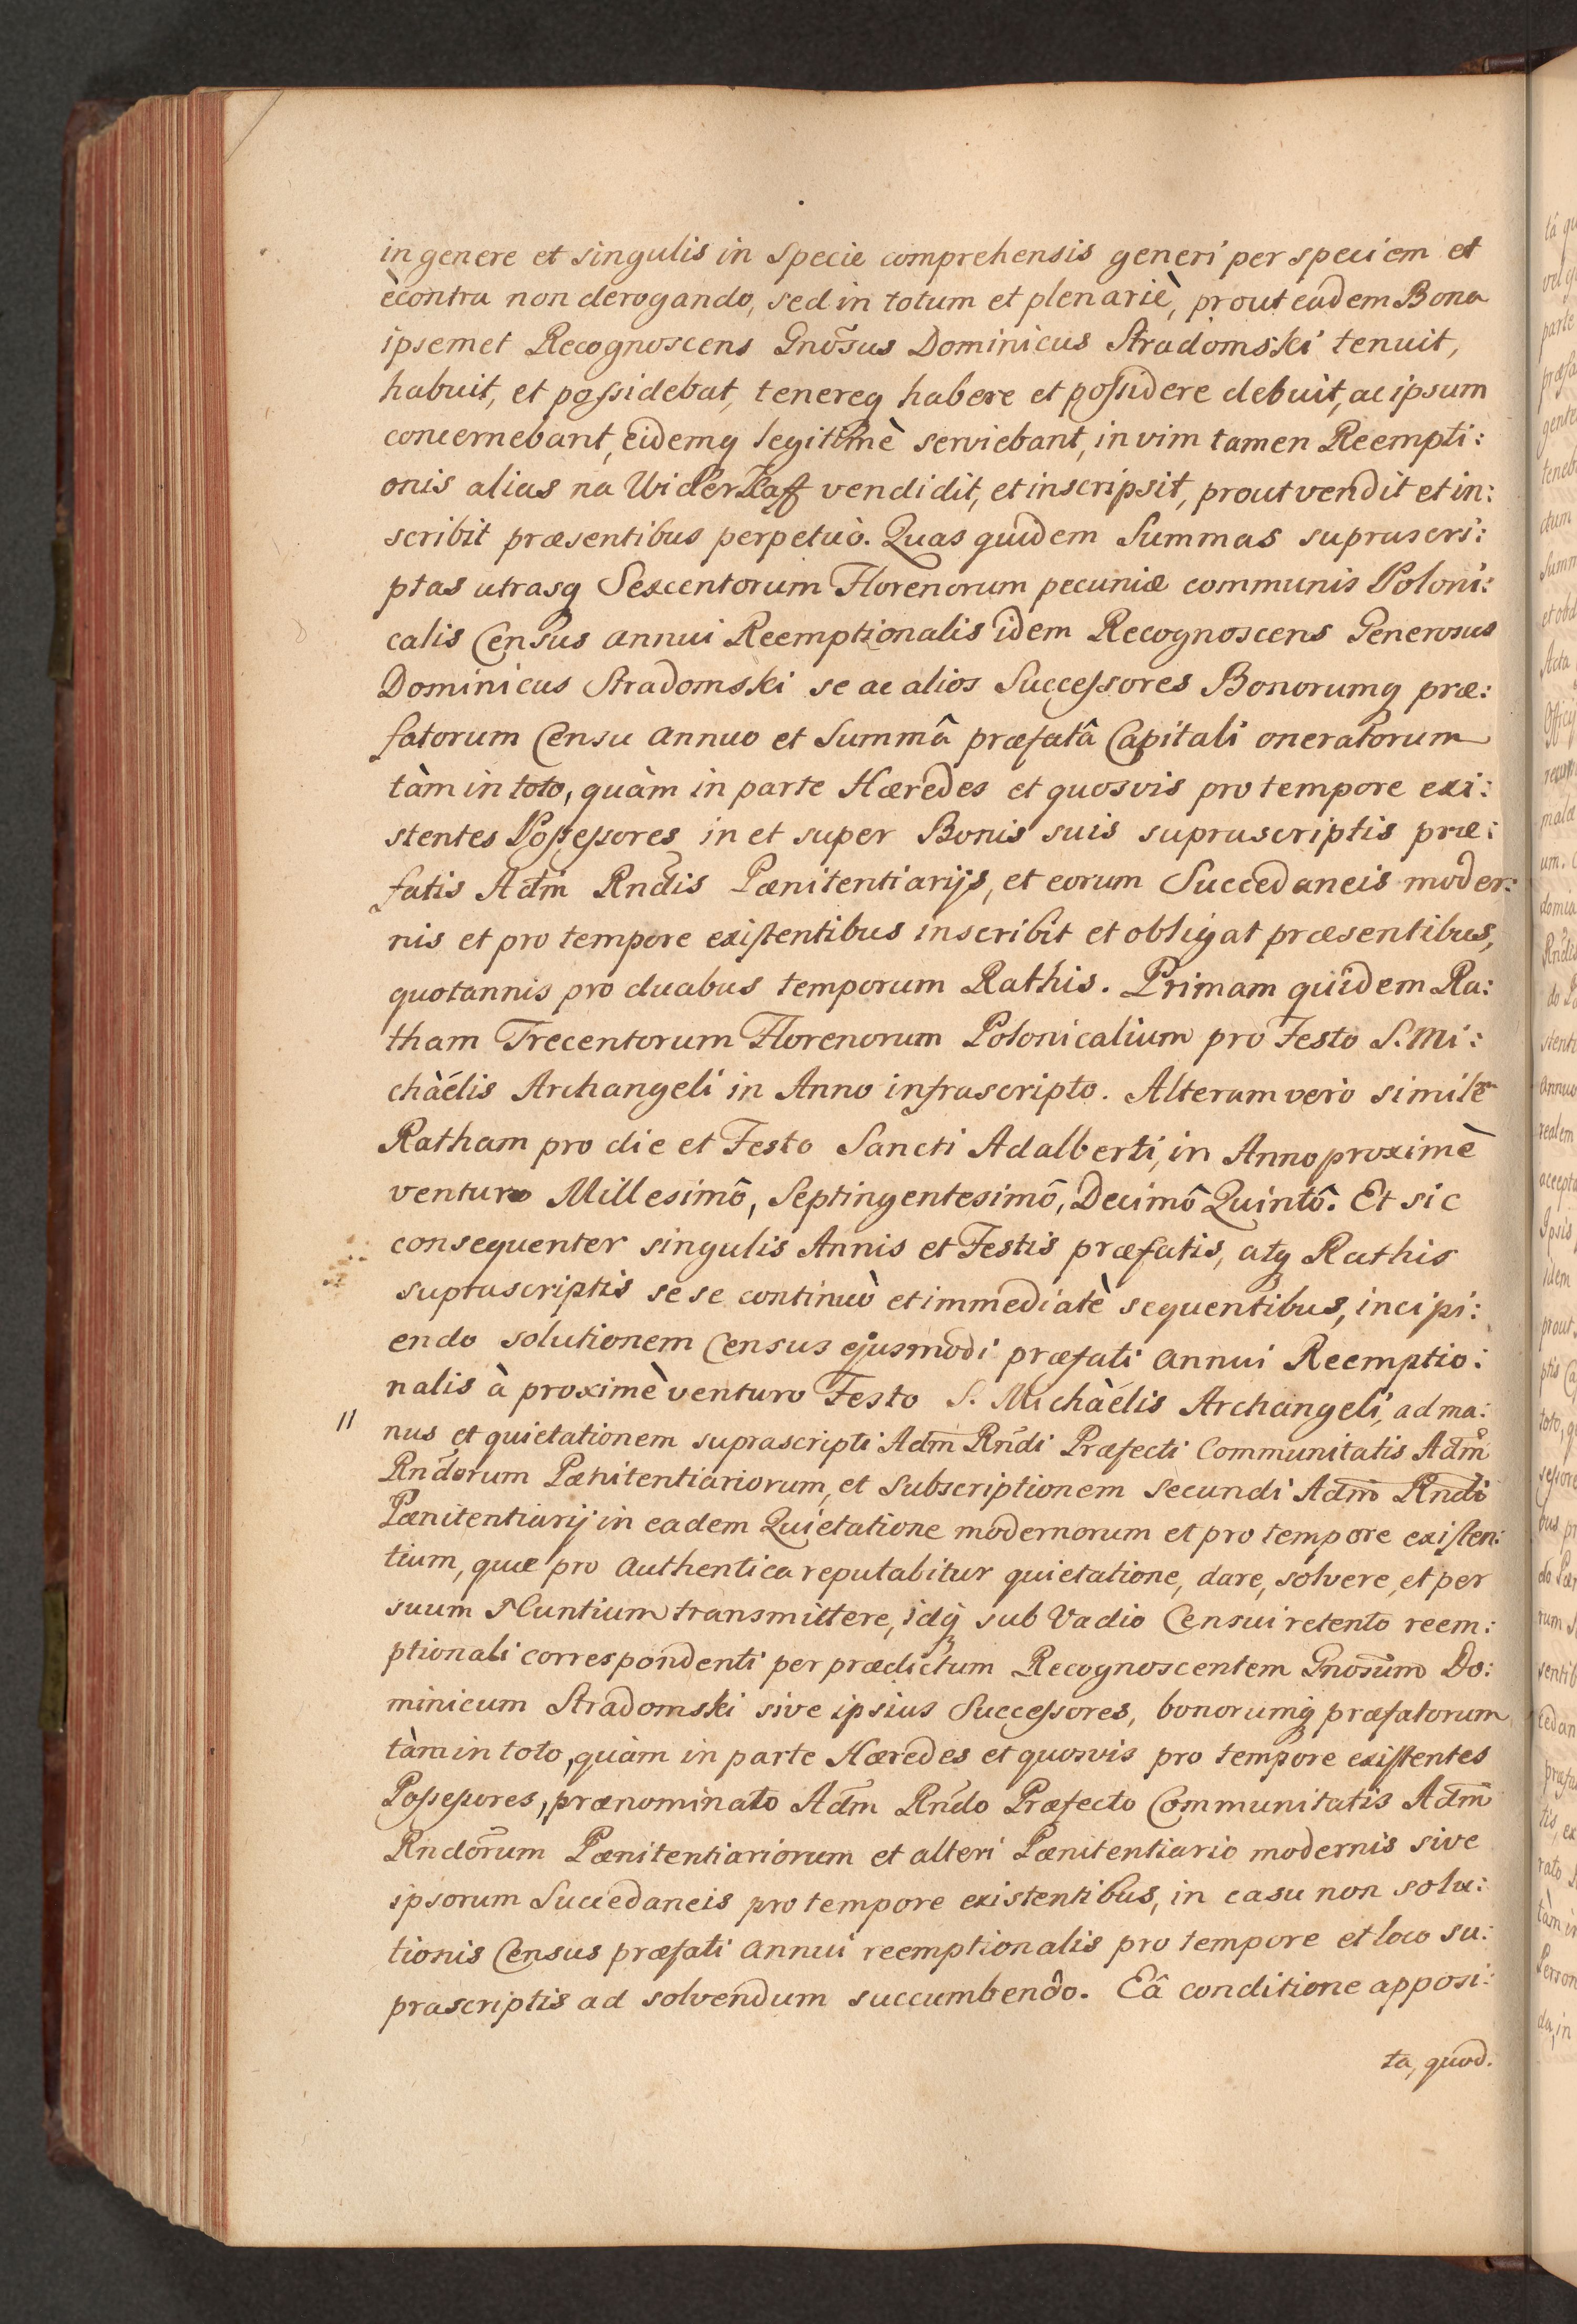 in genere et singulis in specie comprehensis generi per speciem et
ècontra non derogando, sed in totum et plenariè, prout eadem Bona
ipsemet Recognoscens Gnõsus Dominicus Stradomski tenuit,
habuit, et poſsidebat, tenereq habere et poſsidere debuit, ac ipsum
concernebant, eidemq legitimè serviebant, in vim tamen Reempti:
onis alias na Widerkaff vendidit, et inscripsit, prout vendit et in:
scribit præsentibus perpetuò. Quas quidem Summas suprascri:
ptas utrasq Sexcentorum Florenorum pecuniæ communis Poloni:
calis Census annui Reemptionalis idem Recognoscens Generosus
Dominicus Stradomski se ac alios Succeſsores Bonorumq præ:
fatorum Censu annuo et Summâ præfatâ Capitali oneratorum
tàm in toto, quàm in parte Hæredes et quosvis pro tempore exi:
stentes Poſseſsores in et super Bonis suis suprascriptis præ:
fatis Adm̃ Rnd̃is Pænitentiarijs, et eorum Succedaneis moder:
nis et pro tempore exiſtentibus inscribit et obligat præsentibus,
quotannis pro duabus temporum Rathis. Primam quidem Ra:
tham Trecentorum Florenorum Polonicalium pro Festo S. Mi:
chàélis Archangeli in Anno infrascripto. Alteram verò similẽ
Ratham pro die et Festo Sancti Adalberti, in Anno proximè
venturo Millesimô, Septingentesimô, Decimô Quintô. Et sic
consequenter singulis Annis et Festis præfatis, atq Rathis
suprascriptis se se continuò et immediatè sequentibus, incipi:
endo solutionem Census ejusmodi præfati annui Reemptio:
nalis à proximè venturo Festo S. Michàélis Archangeli, ad ma:
11 nus et quietationem suprascripti Adm̃ Rñdi Præfecti Communitatis Adm̃
Rñdorum Pænitentiariorum, et subscriptionem secundi Adm̃ Rndĩ
Pænitentiarij in eadem Quietatione modernorum et pro tempore exiſten:
tium, quæ pro authentica reputabitur quietatione, dare, solvere, et per
suum Nuntium transmittere, idq sub Vadio Censui retento reem:
ptionali correspondenti per prædictum Recognoscentem Gnosũm Do:
minicum Stradomski sive ipsius Succeſsores, bonorumq præfatorum
tàm in toto, quàm in parte Hæredes et quosvis pro tempore exiſtentes
Poſseſsores, prænominato Adm̃ Rñdo Præfecto Communitatis Adm̃
Rndõrum Pænitentiariorum et alteri Pænitentiario modernis sive
ipsorum Succedaneis pro tempore existentibus, in casu non solu:
tionis Census præfati annui reemptionalis pro tempore et loco su:
prascriptis ad solvendum succumbendo. Eâ conditione apposi:
ta, quod.